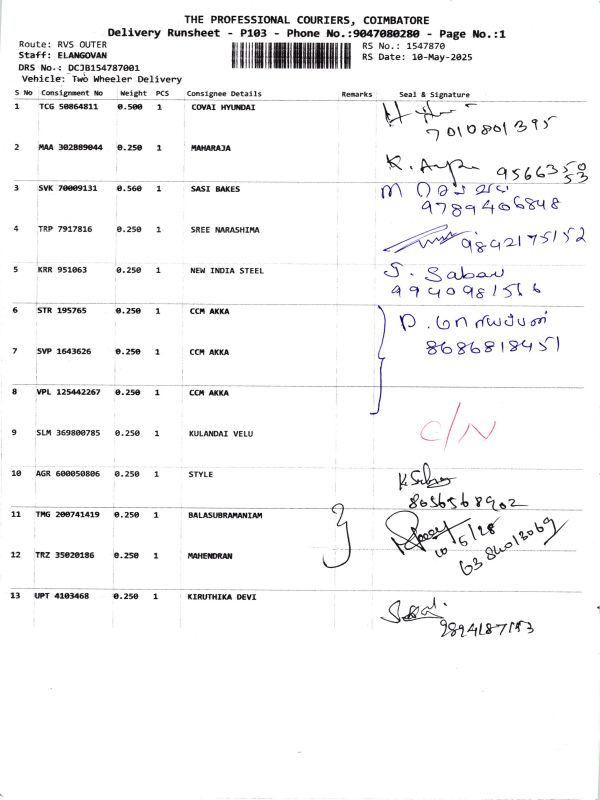 THE PROFESSIONAL COURIERS, COIMBATORE
Delivery Runsheet - P103 - Phone No.:9047080280 - Page No.:1
Route: RVS OUTER
RS No.: 1547870
Staff: ELANGOVAN
RS Date: 10-May-2025
DRS No.: DCJB154787001
Vehicle: Two Wheeler Delivery
S No Consignment No Weight PCS Consignee Details Remarks Seal & Signature
1 TCG 50864811 0.500 1 COVAI HYUNDAI
7010801395
2 MAA 302889044 0.250 1 MAHARAJA
9566350
53
3 SVK 70009131 0.560 1 SASI BAKES
9789406848
4 TRP 7917816 0.250 1 SREE NARASHIMA
9842175152
5 KRR 951063 0.250 1 NEW INDIA STEEL
S. Sabari
9940981566
6 STR 195765 0.250 1 CCM AKKA
P. மாரியப்பன்
7 SVP 1643626 0.250 1 CCM AKKA
8686818451
8 VPL 125442267 0.250 1 CCM AKKA
9 SLM 369800785 0.250 1 KULANDAI VELU
C/N
10 AGR 600050806 0.250 1 STYLE
8656568902
11 TMG 200741419 0.250 1 BALASUBRAMANIAM
12 TRZ 35020186 0.250 1 MAHENDRAN
13 UPT 4103468 0.250 1 KIRUTHIKA DEVI